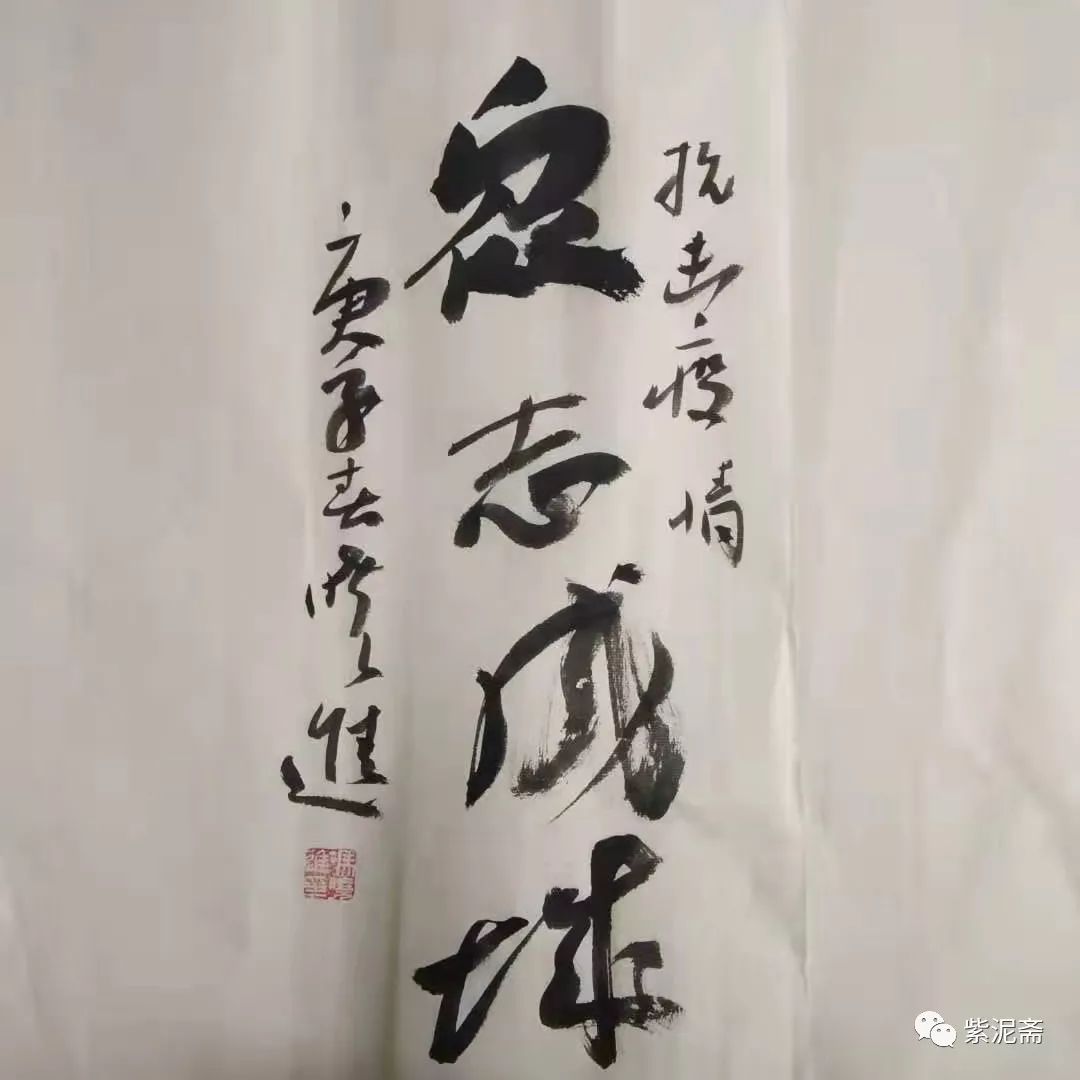 抗击疫情
众志成城
庚子春 进
紫泥斋